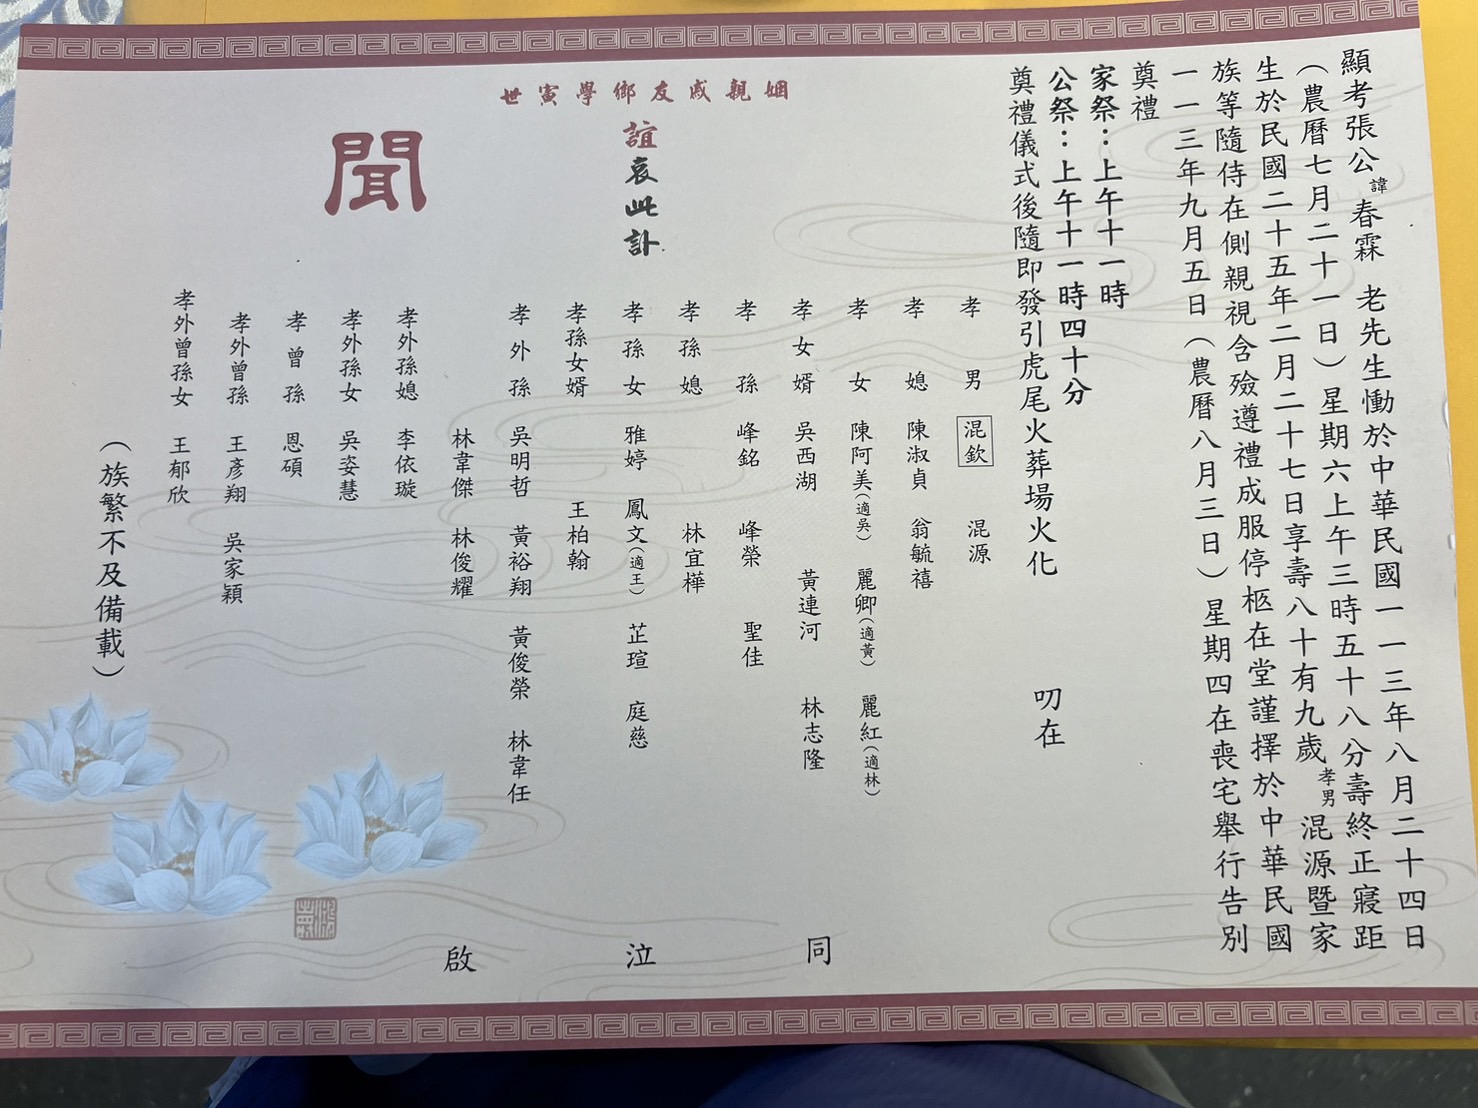 顯考張公諱春霖 老先生慟於中華民國一一三年八月二十四日
（農曆七月二十一日）星期六上午三時五十八分壽終正寢距
生於民國二十五年二月二十七日享壽八十有九歲孝男混源暨家
族等隨侍在側親視含殮遵禮成服停柩在堂謹擇於中華民國
一一三年九月五日（農曆八月三日）星期四在喪宅舉行告別
奠禮
家祭：上午十一時
公祭：上午十一時四十分
奠禮儀式後隨即發引虎尾火葬場火化 叨在
姻親戚友鄉學寅世
誼哀此訃
聞
孝男 混欽 混源
孝媳 陳淑貞 翁毓禧
孝女 陳阿美（適吳） 麗卿（適黃） 麗紅（適林）
孝女婿 吳西湖 黃連河 林志隆
孝孫 峰銘 峰榮 聖佳
孝孫媳 林宜樺
孝孫女 雅婷 鳳文（適王） 芷瑄 庭慈
孝孫女婿 王柏翰
孝外孫 吳明哲 黃裕翔 黃俊榮 林韋任
林韋傑 林俊耀
孝外孫媳 李依璇
孝外孫女 吳姿慧
孝曾孫 恩碩
孝外曾孫 王彥翔 吳家穎
孝外曾孫女 王郁欣
（族繁不及備載）
同 泣 啟